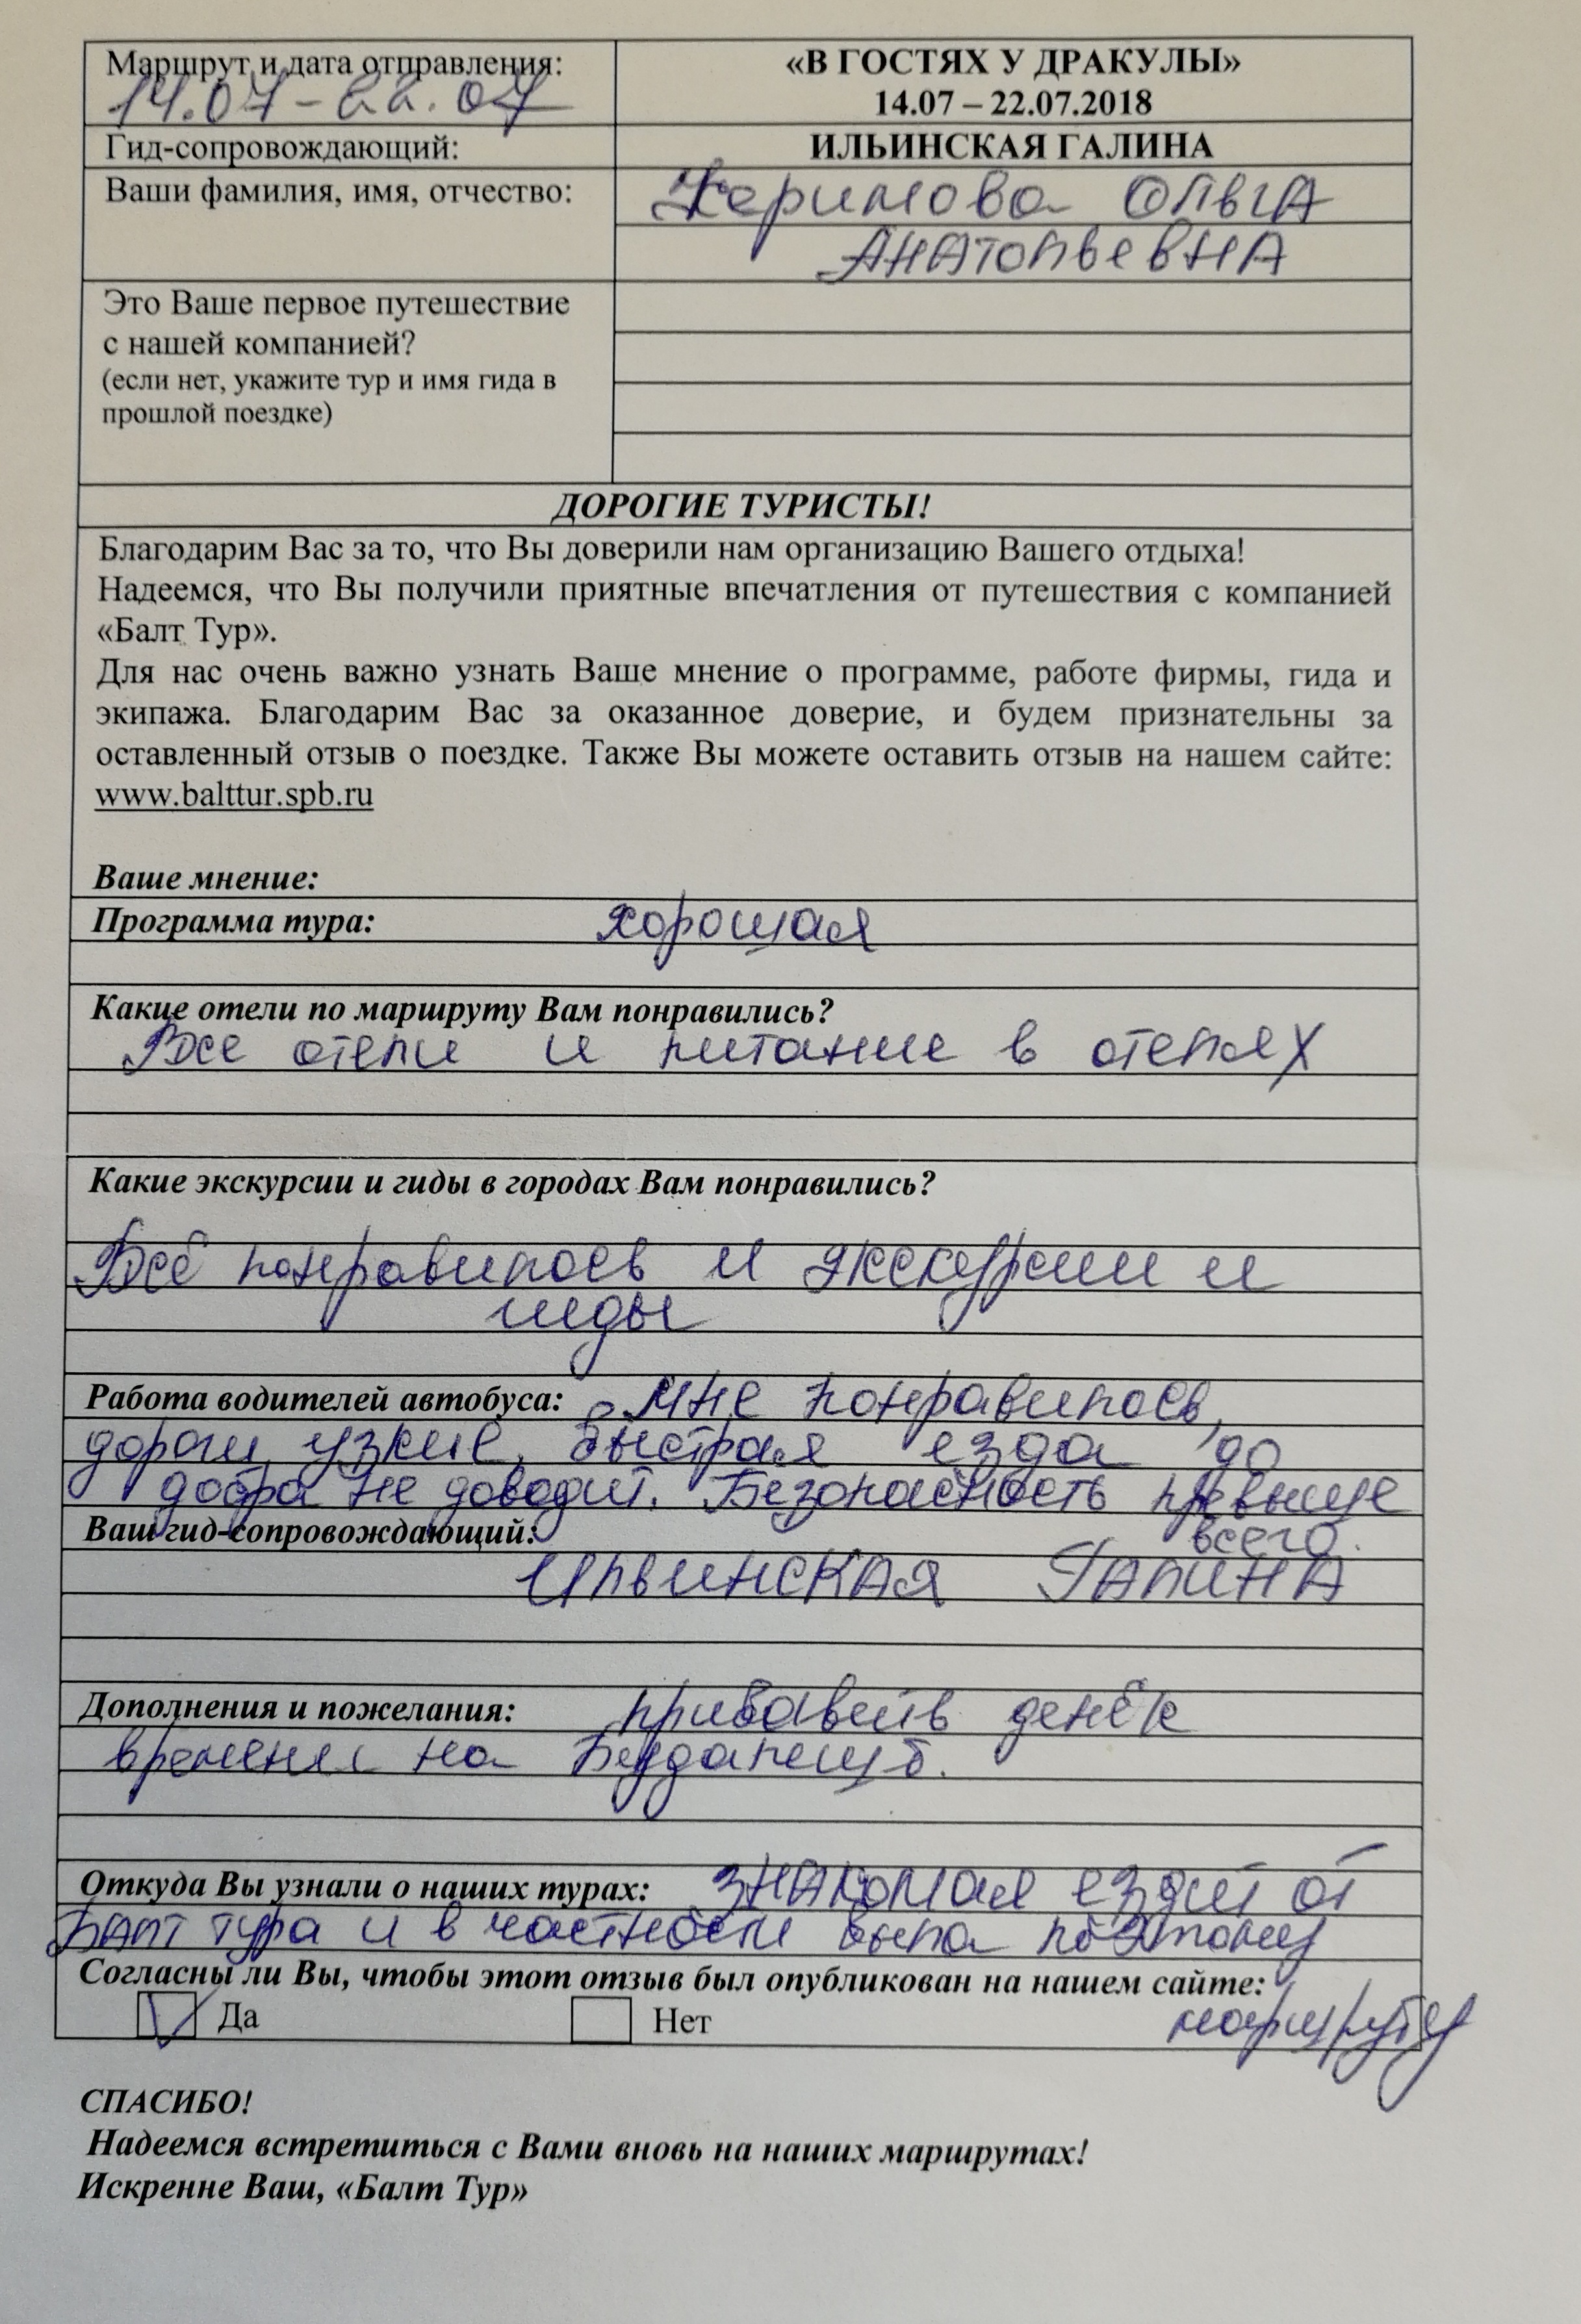 Маршрут и дата отправления:
14.07-22.07
«В ГОСТЯХ У ДРАКУЛЫ»
14.07 – 22.07.2018
Гид-сопровождающий:
ИЛЬИНСКАЯ ГАЛИНА
Ваши фамилия, имя, отчество:
Керимова Ольга
Анатольевна
Это Ваше первое путешествие
с нашей компанией?
(если нет, укажите тур и имя гида в
прошлой поездке)
ДОРОГИЕ ТУРИСТЫ!
Благодарим Вас за то, что Вы доверили нам организацию Вашего отдыха!
Надеемся, что Вы получили приятные впечатления от путешествия с компанией
«Балт Тур».
Для нас очень важно узнать Ваше мнение о программе, работе фирмы, гида и
экипажа. Благодарим Вас за оказанное доверие, и будем признательны за
оставленный отзыв о поездке. Также Вы можете оставить отзыв на нашем сайте:
www.balttur.spb.ru
Ваше мнение:
Программа тура: хорошая
Какие отели по маршруту Вам понравились?
Все отели и питание в отелях
Какие экскурсии и гиды в городах Вам понравились?
Всё понравилось и экскурсии и
гиды
Работа водителей автобуса: Мне понравилось,
дороги узкие, быстрая езда до
добра не доводит. Безопасность превыше
всего.
Ваш гид-сопровождающий:
Ильинская Галина
Дополнения и пожелания: прибавить денёк
времени на Будапешт.
Откуда Вы узнали о наших турах: знакомая ездит от
Балт тура и в частности была по этому
маршруту
Согласны ли Вы, чтобы этот отзыв был опубликован на нашем сайте:
Да Нет
СПАСИБО!
Надеемся встретиться с Вами вновь на наших маршрутах!
Искренне Ваш, «Балт Тур»